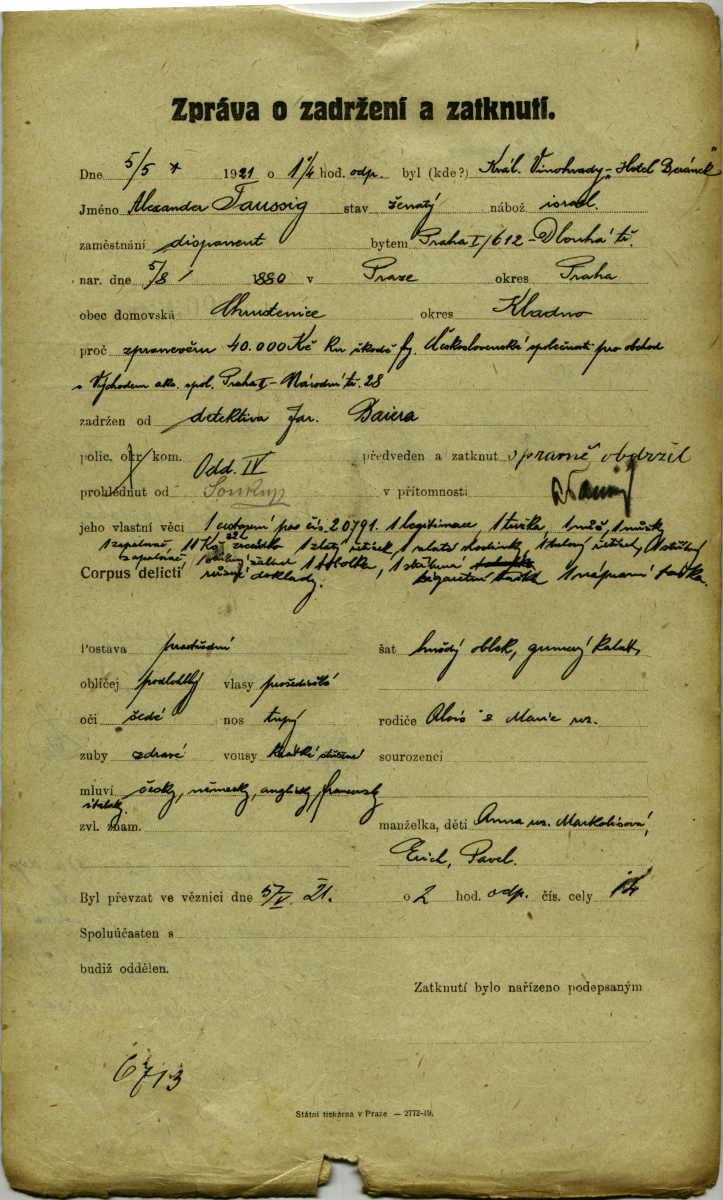 Zpráva o zadržení a zatknutí.
Dne 5/5 1921 o 1 1/4 hod. odp. byl (kde?) Král. Vinohrady „Hotel Beránek"
Jméno Alexander Taussig stav ženatý nábož. israel.
zaměstnání disponent bytem Praha I/612 - Dlouhá tř.
nar. dne 5/8 1880 v Praze okres Praha
obec domovská okres Kladno
proč zpronevěru 40.000 Kč ku škodě fy. Československé společnosti pro obchod
s Východem akc. spol. Praha II - Národní tř. 28
zadržen od detektiva Jar. Baiera
polic. okr. kom. Odd. IV předveden a zatknut správně obdržel
prohlédnut od Soukup v přítomnosti
jeho vlastní věci 1 cestovní pas čís. 20791. 1 legitimace, 1 tužka, 1 nůž, 1 nůžky
1 zapalovač, 11 Kč 22 1 zlatý 1 zlaté hodinky,
Corpus delicti 1 tobolka, 1 stříbrná 1 náprsní taška.
různé doklady.
Postava prostřední šat hnědý oblek, gumový kabát,
obličej podlouhlý vlasy prošedivělé
oči šedé nos tupý rodiče Alois a Marie nž.
zuby zdravé vousy krátké stříhané sourozenci
mluví česky, německy, anglicky, francouzsky
italsky.
zvl. znam. manželka, děti Anna roz. Markolisová,
Erich, Pavel.
Byl převzat ve věznici dne 5/V. 21. o 2 hod. odp. čís. cely 14
Spoluúčasten s
budiž oddělen.
Zatknutí bylo nařízeno podepsaným
6713
Státní tiskárna v Praze — 2772-19.